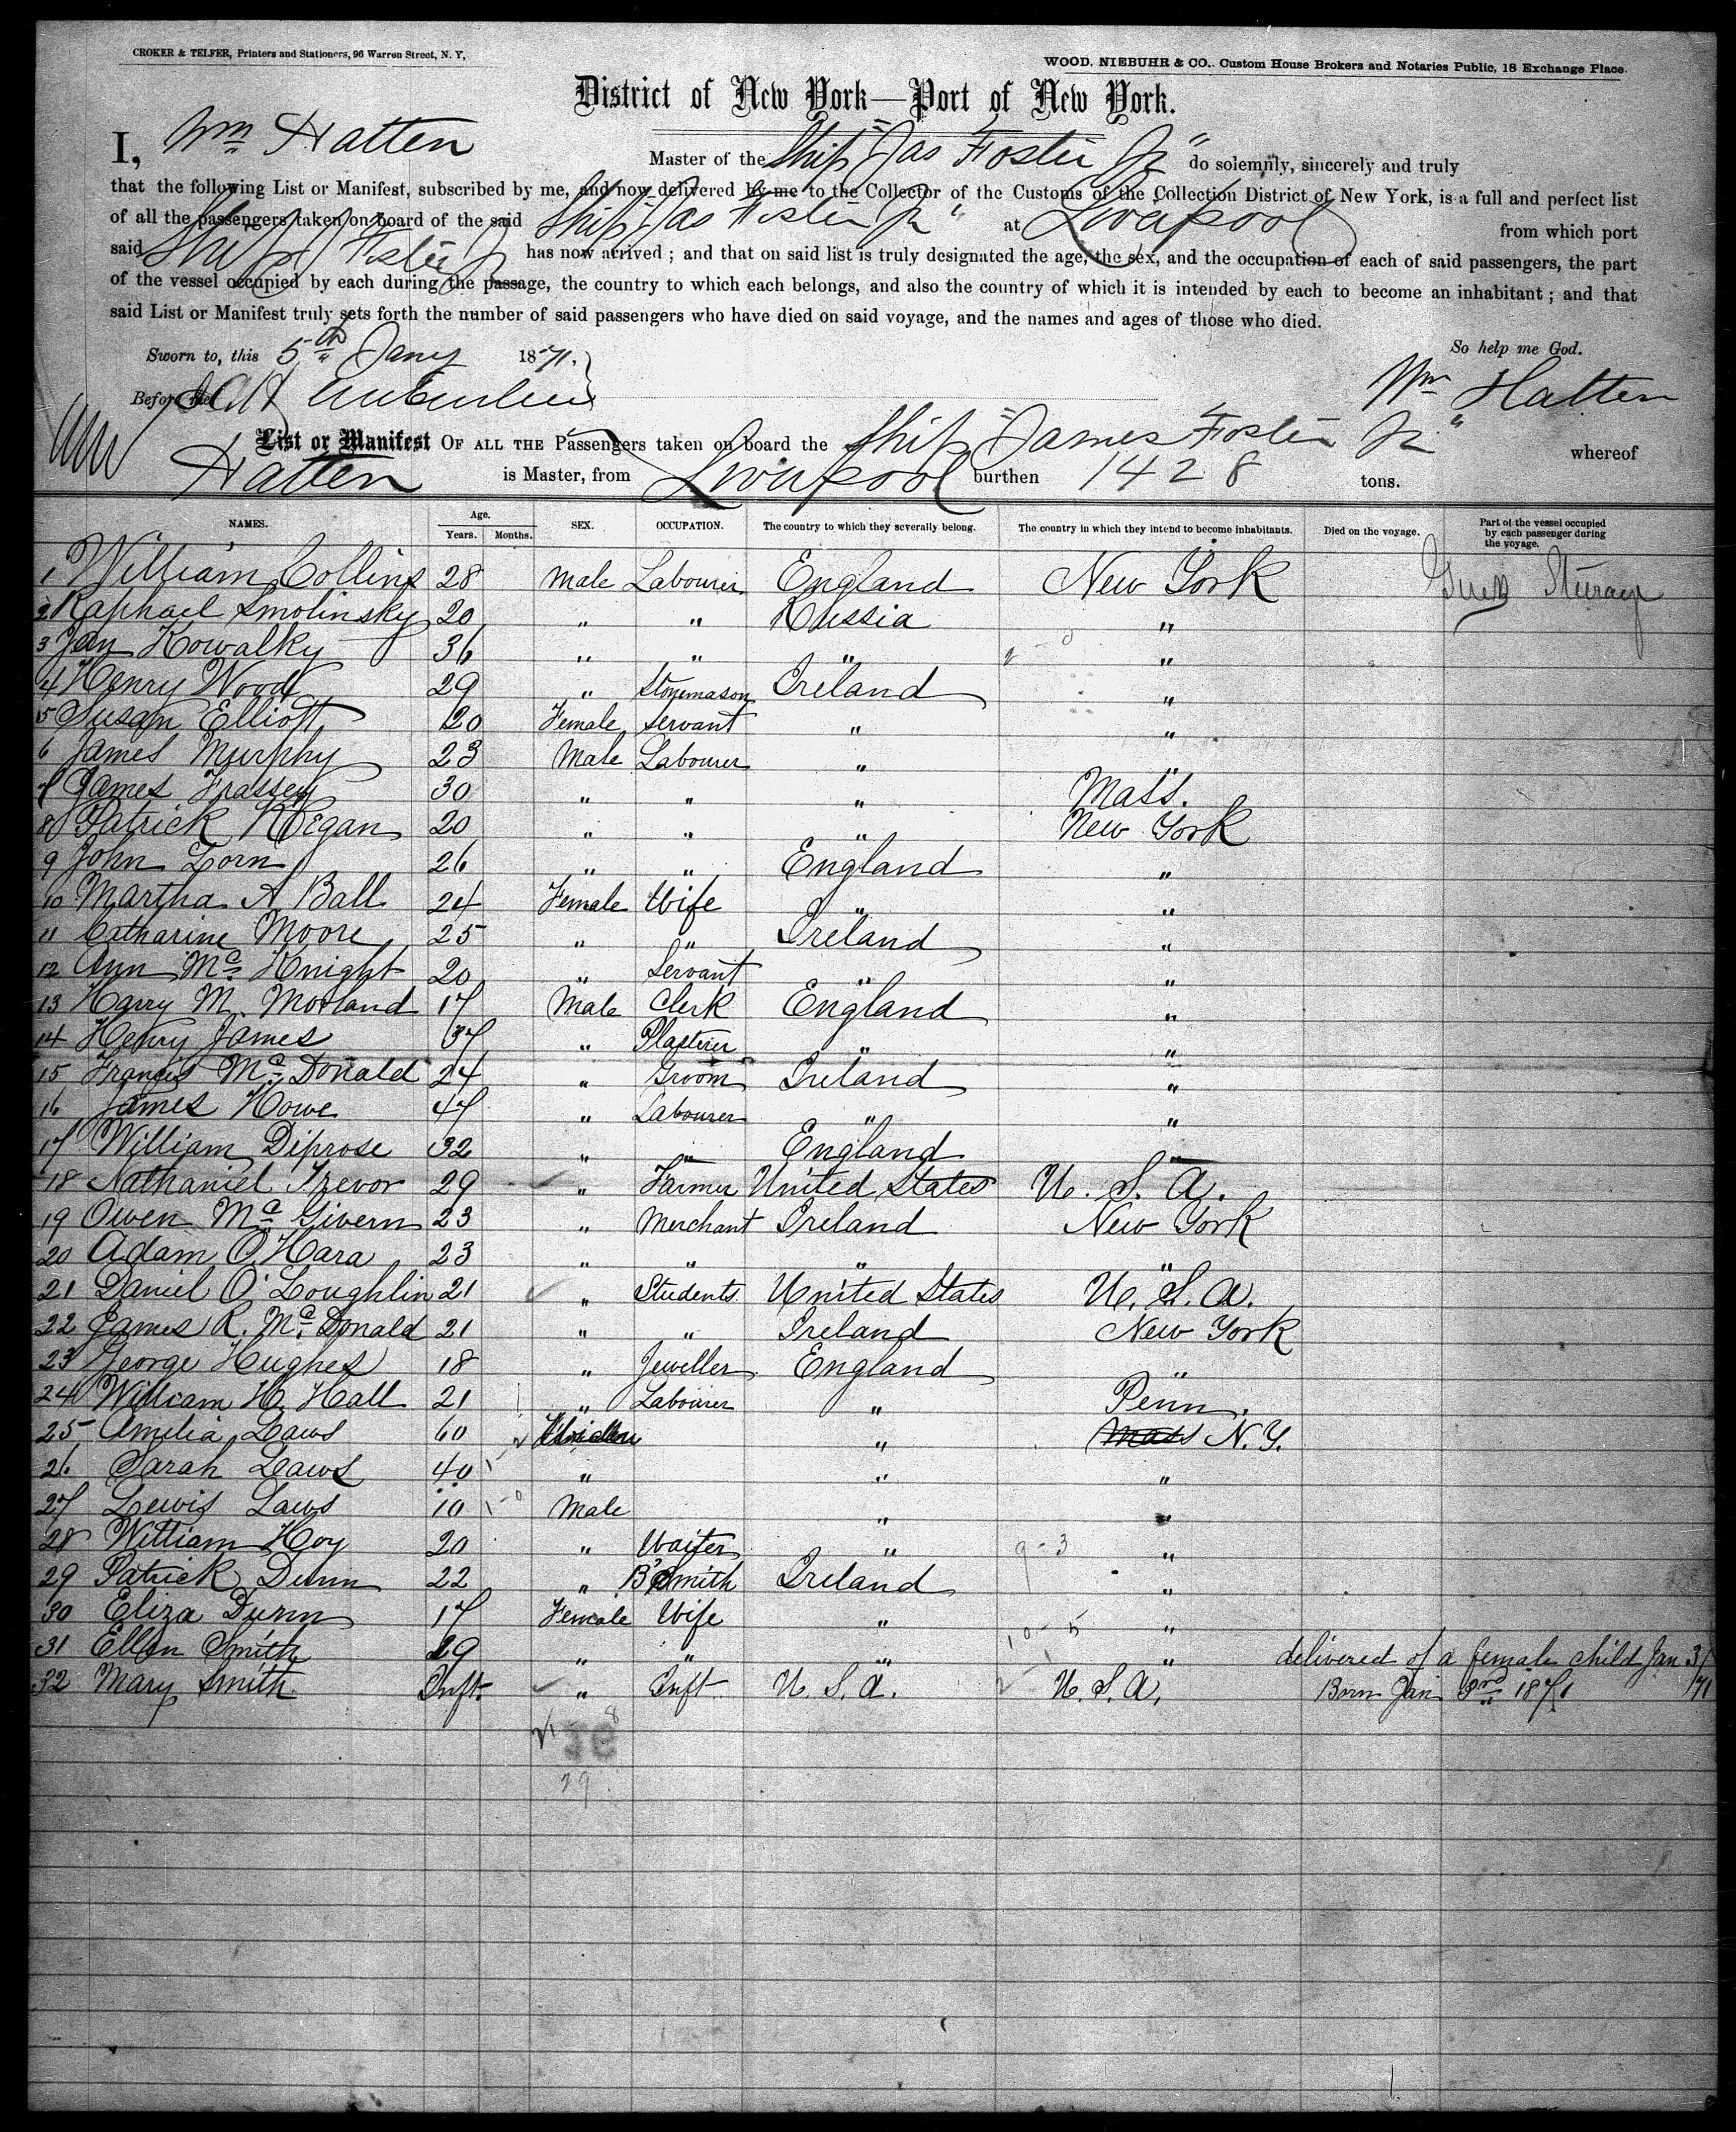 CROKER & TELFER, Printers and Stationers, 96 Warren Street, N. Y,
WOOD, NIEBUHR & CO., Custom House Brokers and Notaries Public, 18 Exchange Place.
District of New York—Port of New York.
I, Wm Hatten Master of the Ship "Jas Foster Jr" do solemnly, sincerely and truly
that the following List or Manifest, subscribed by me, and now delivered by me to the Collector of the Customs of the Collection District of New York, is a full and perfect list
of all the passengers taken on board of the said Ship "Jas Foster Jr" at Liverpool from which port
said Ship Jas Foster Jr has now arrived ; and that on said list is truly designated the age, the sex, and the occupation of each of said passengers, the part
of the vessel occupied by each during the passage, the country to which each belongs, and also the country of which it is intended by each to become an inhabitant ; and that
said List or Manifest truly sets forth the number of said passengers who have died on said voyage, and the names and ages of those who died.
So help me God.
Sworn to, this 5th Jany 1871.
Before me Wm Hatten
List or Manifest OF ALL THE Passengers taken on board the Ship "James Foster Jr" whereof
Hatten is Master, from Liverpool burthen 1428 tons.
NAMES. Age. Years. Months. SEX. OCCUPATION. The country to which they severally belong. The country in which they intend to become inhabitants. Died on the voyage. Part of the vessel occupied by each passenger during the voyage.
1 William Collins 28 Male Labourer England New York Steerage
2 Raphael Smolinsky 20 " " Russia "
3 Jan Kowalky 36 " " " "
4 Henry Wood 29 " Stonemason Ireland "
5 Susan Elliott 20 Female Servant " "
6 James Murphy 23 Male Labourer " "
7 James Frassey 30 " " " Mass.
8 Patrick Keegan 20 " " " New York
9 John Lorn 26 " " England "
10 Martha A Ball 24 Female Wife " "
11 Catharine Moore 25 " " Ireland "
12 Ann Mc Knight 20 " Servant " "
13 Harry M. Morland 17 Male Clerk England "
14 Henry James 37 " Plasterer " "
15 Francis Mc Donald 24 " Groom Ireland "
16 James Howe 47 " Labourer " "
17 William Diprose 32 " " England "
18 Nathaniel Trevor 29 " Farmer United States U. S. A.
19 Owen Mc Givern 23 " Merchant Ireland New York
20 Adam O'Hara 23 " " " "
21 Daniel O'Loughlin 21 " Students United States U. S. A.
22 James R. Mc Donald 21 " " Ireland New York
23 George Hughes 18 " Jeweller England "
24 William H. Hall 21 " Labourer " Penn.
25 Amelia Laws 60 " Mass N. Y.
26 Sarah Laws 40 " " "
27 Lewis Laws 10 Male " "
28 William Hoy 20 " Waiter " "
29 Patrick Dunn 22 " B'Smith Ireland "
30 Eliza Dunn 17 Female Wife " "
31 Ellen Smith 29 " " " " delivered of a female child Jan 3/71
32 Mary Smith Inft. " Inft. U. S. A. U. S. A. Born Jan 3rd 1871